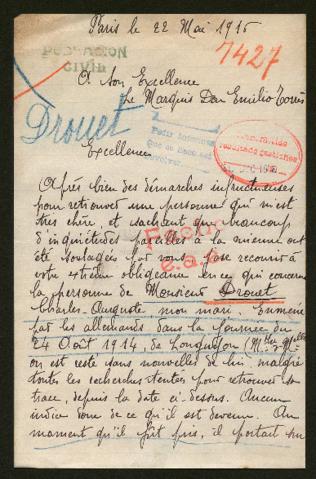 Paris le 22 Mai 1915
7427
POBLACION
CIVIL
A Son Excellence
Le Marquis Don Emilio Torrès
Drouet
Pedir informes
Que se haga sed
Excellence
Après bien des démarches infructueuses
pour retrouver une personne qui m'est
très chère, et sachant que beaucoup
d'inquiétudes pareilles à la mienne ont
été soulagées par vous, j'ose recourir à
votre extrême obligeance en ce qui concerne
la personne de Monsieur Drouet
Charles-Auguste mon mari. Emmené
par les allemands dans la journée du
24 Août 1914, de Longuyon (Mthe & Mlle
on est resté sans nouvelles de lui, malgré
toutes les recherches tentées pour retrouver sa
trace, depuis la date ci-dessus. Aucun
indice donc de ce qu'il est devenu. Au
moment qu'il fut pris, il portait sur